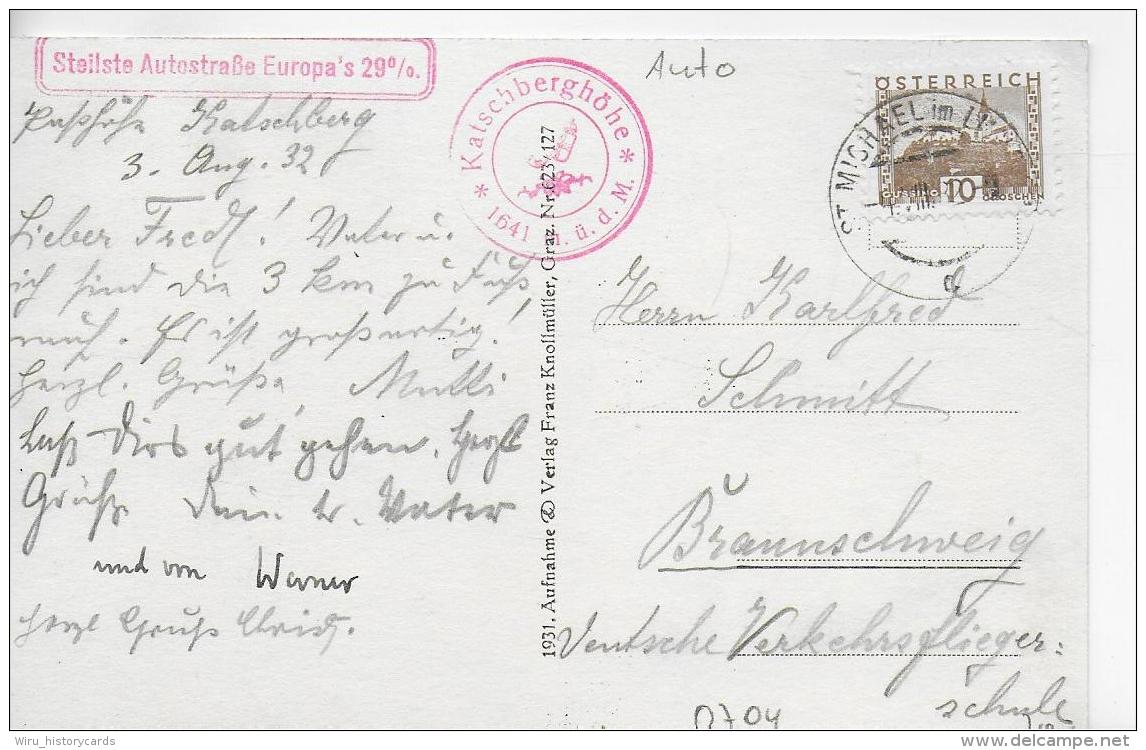 Steilste Autostraße Europa's 29%.
Paßhöhe Katschberg
3. Aug. 32
Lieber Fredl! Vater u.
ich sind die 3 km zu Fuß
rauf. Es ist großartig!
herzl. Grüße Mutti
Laß Dirs gut gehen. Herzl
Grüße Dein tr. Vater
und von Werner
herzl Gruß
* Katschberghöhe *
1641 m. ü. d. M.
1931. Aufnahme & Verlag Franz Knollmüller, Graz. Nr. 623/127
Auto
ÖSTERREICH
GÜSSING 10 GROSCHEN
ST. MICHAEL im
Herrn Karlfred
Schmitt
Braunschweig
Deutsche Verkehrsflieger:
schule
0704
Wiru_historycards
www.delcampe.net